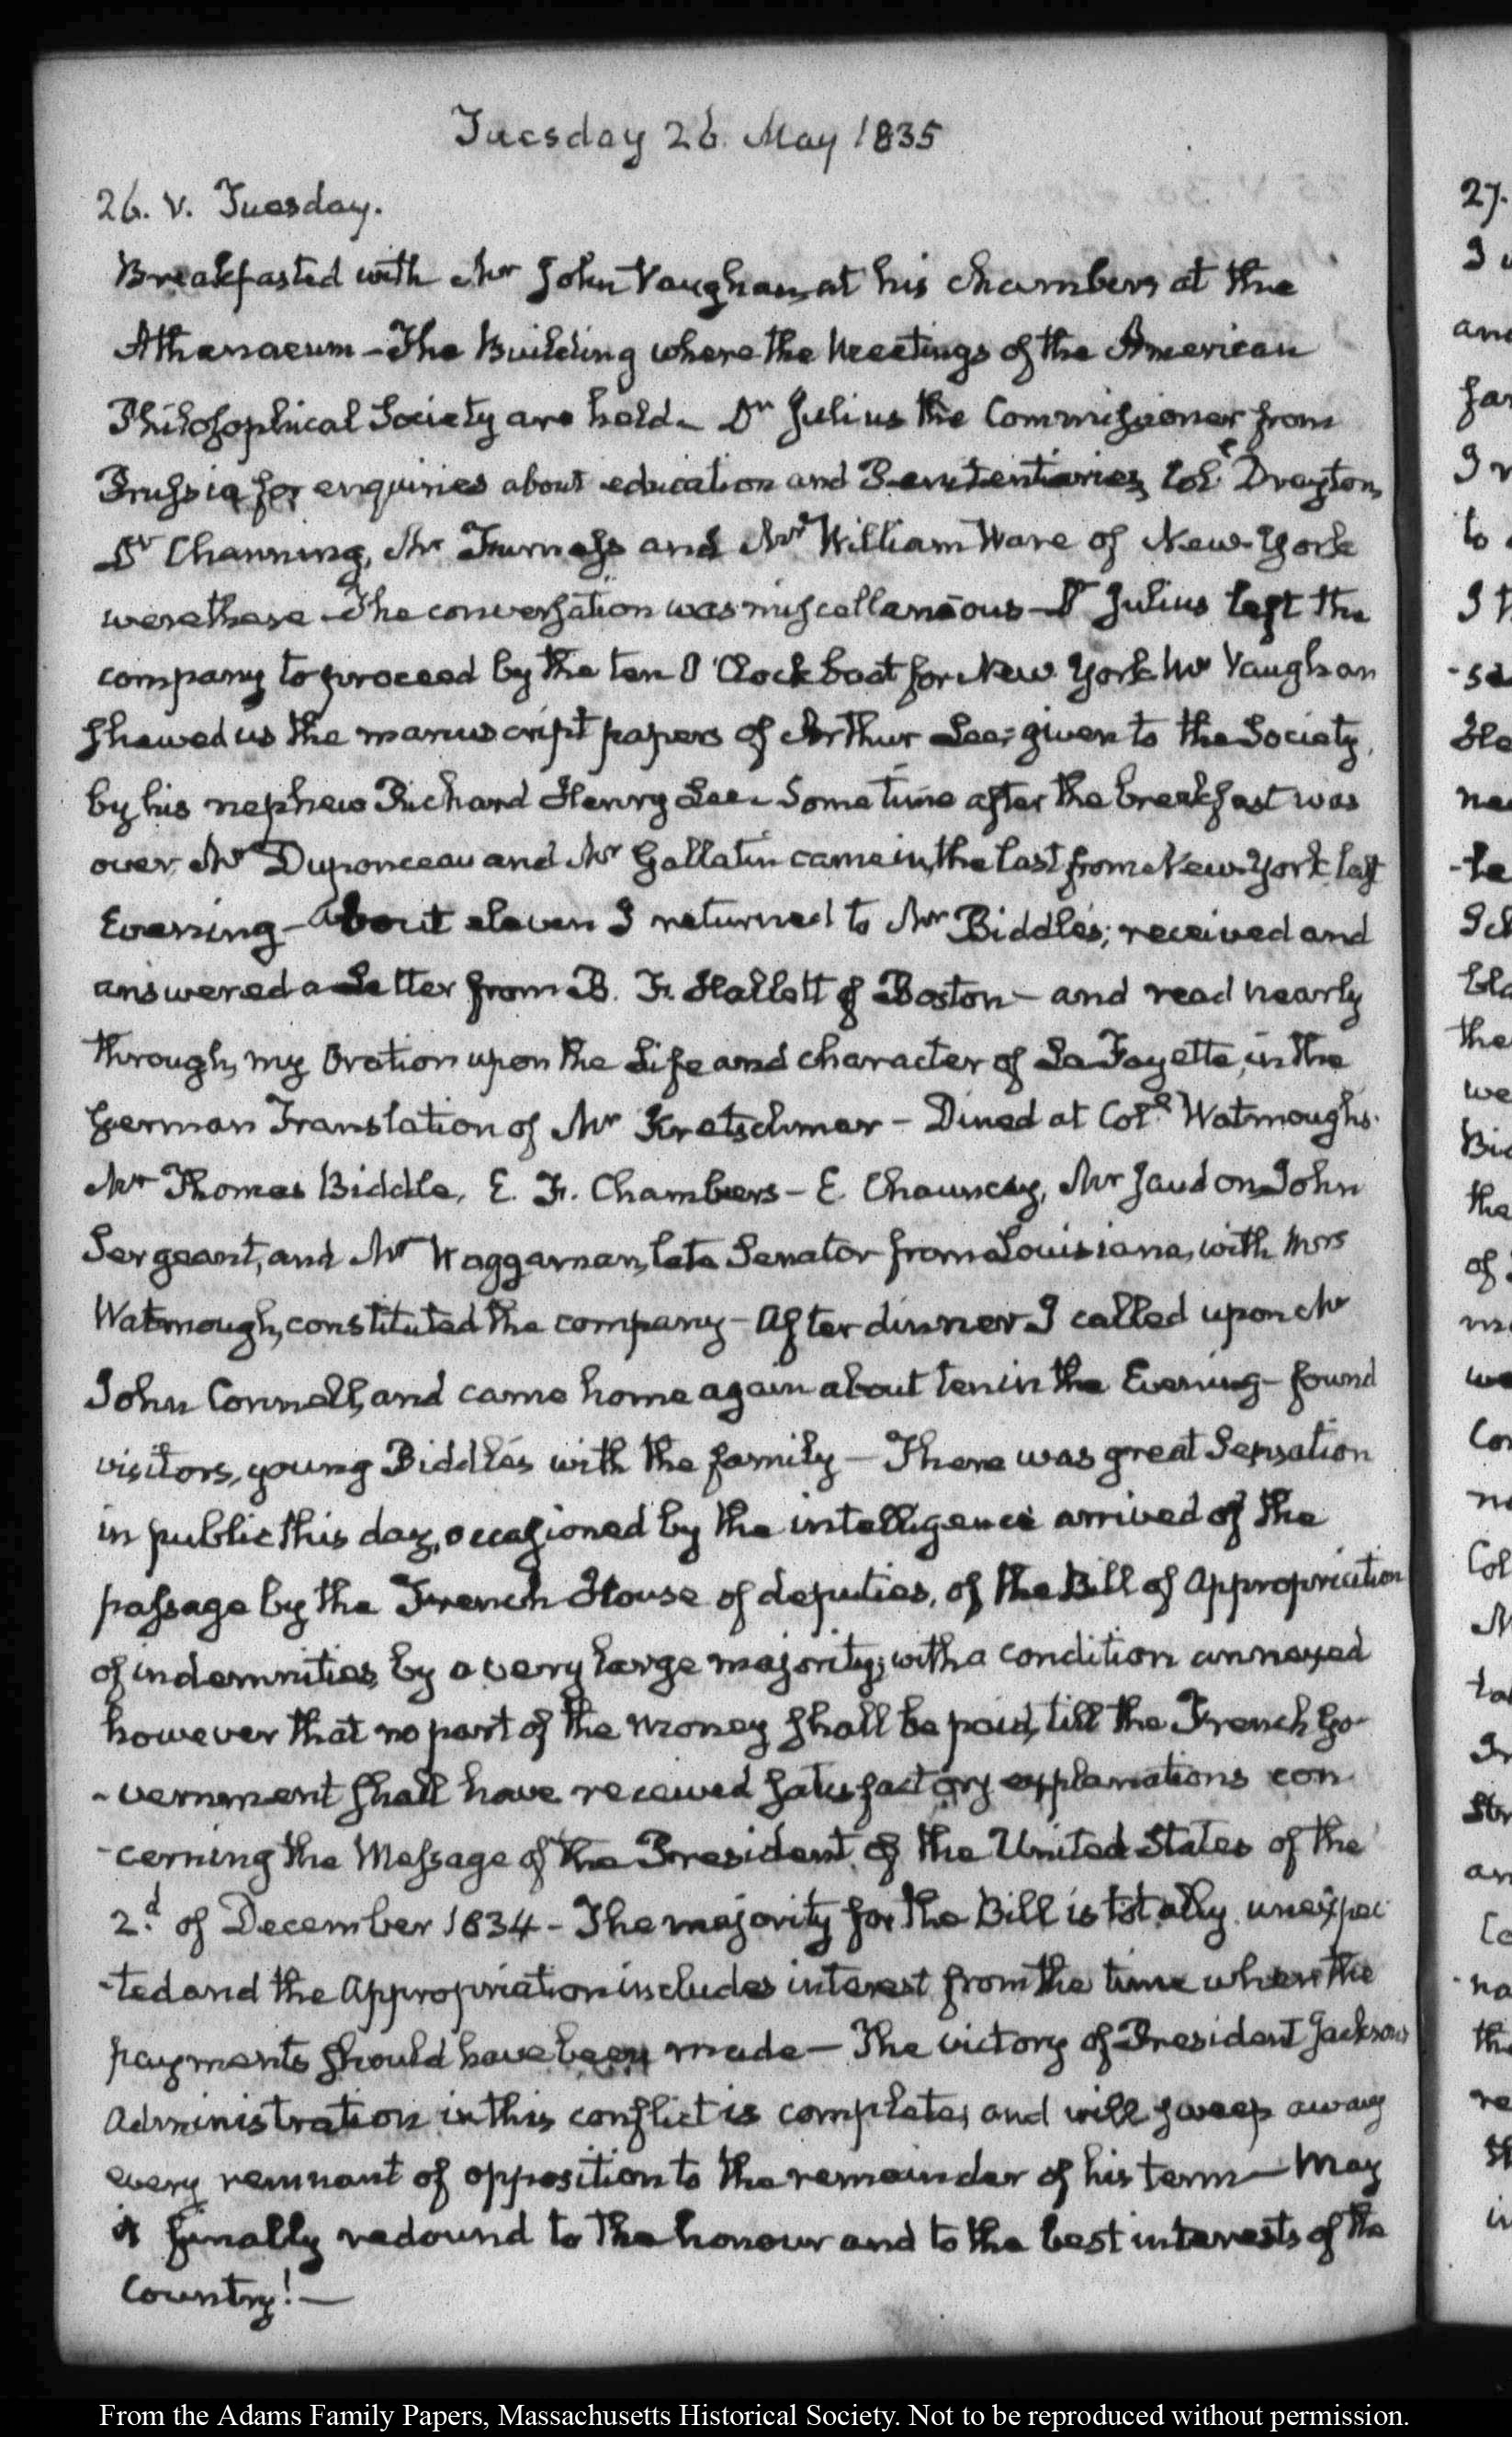 Tuesday 26. May 1835
26. V. Tuesday.
Breakfasted with Mr John Vaughan, at his chambers, at the
Athenaeum – The Building where the Meetings of the American
Philosophical Society are held – Dr Julius the Commissioner from
Prussia for enquiries about education and Penitentiaries, Coll Drayton,
Dr Channing, Mr Furness and Mr William Ware of New-York
were there – The conversation was miscellaneous – Dr Julius left the
company to proceed by the ten O'Clock boat for New York Mr Vaughan
shewed us the manuscript papers of Arthur Lee; given to the Society,
by his nephew Richard Henry Lee – Some time after the breakfast was
over, Mr Duponceau and Mr Gallatin came in, the last from New-York last
Evening – About eleven I returned to Mr Biddle's; received and
answered a Letter from B. F. Hallett of Boston – and read nearly
through, my Oration upon the Life and character of La Fayette, in the
German Translation of Mr Kretschmar – Dined at Coll Watmough's.
Mr Thomas Biddle, E. F. Chambers – E. Chauncey, Mr Jaudon, John
Sergeant, and Mr Waggaman, late Senator from Louisiana, with Mrs
Watmough, constituted the company – After dinner I called upon Mr
John Connell, and came home again about ten in the Evening – found
visitors, young Biddles with the family – There was great Sensation
in public this day, occasioned by the intelligence arrived of the
passage by the French House of deputies, of the Bill of Appropriation
of indemnities, by a very large majority; with a condition annexed
however that no part of the money shall be paid, till the French Go-
-vernment shall have received satisfactory explanations con-
-cerning the Message of the President of the United States of the
2.d of December 1834 – The majority for the Bill is totally unexpec
-ted and the Appropriation includes interest from the time when the
payments should have been made – The victory of President Jackson's
Administration in this conflict is complete, and will sweep away
every remnant of opposition to the remainder of his term – May
it finally redound to the honour and to the best interests of the
Country! –
From the Adams Family Papers, Massachusetts Historical Society. Not to be reproduced without permission.